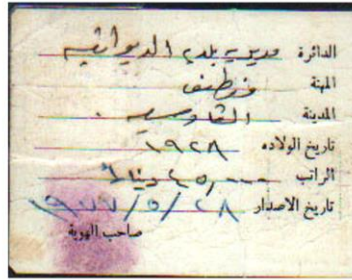 الدائرة مديرية بلدية الديوانية
المهنة موظف
المدينة القادسية .
تاريخ الولاده ١٩٢٨
الراتب ٤٥,٠٠٠ دينار
تاريخ الاصدار ١٩٧٧/٥/٢٨
صاحب الهوية